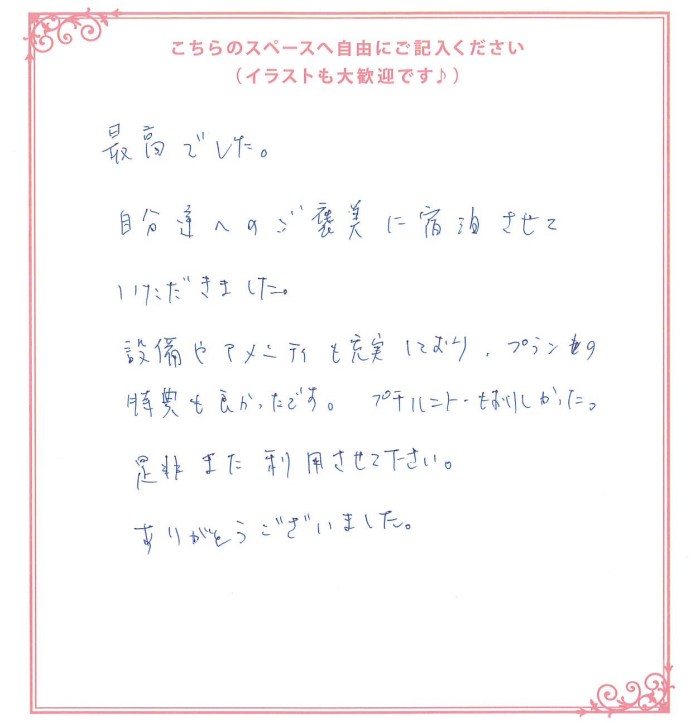 こちらのスペースへ自由にご記入ください
（イラストも大歓迎です♪）
最高でした。
自分達へのご褒美に宿泊させて
いただきました。
設備やアメニティも充実しており、プランの
特典も良かったです。 プチルニトーもおいしかった。
是非また利用させて下さい。
ありがとうございました。